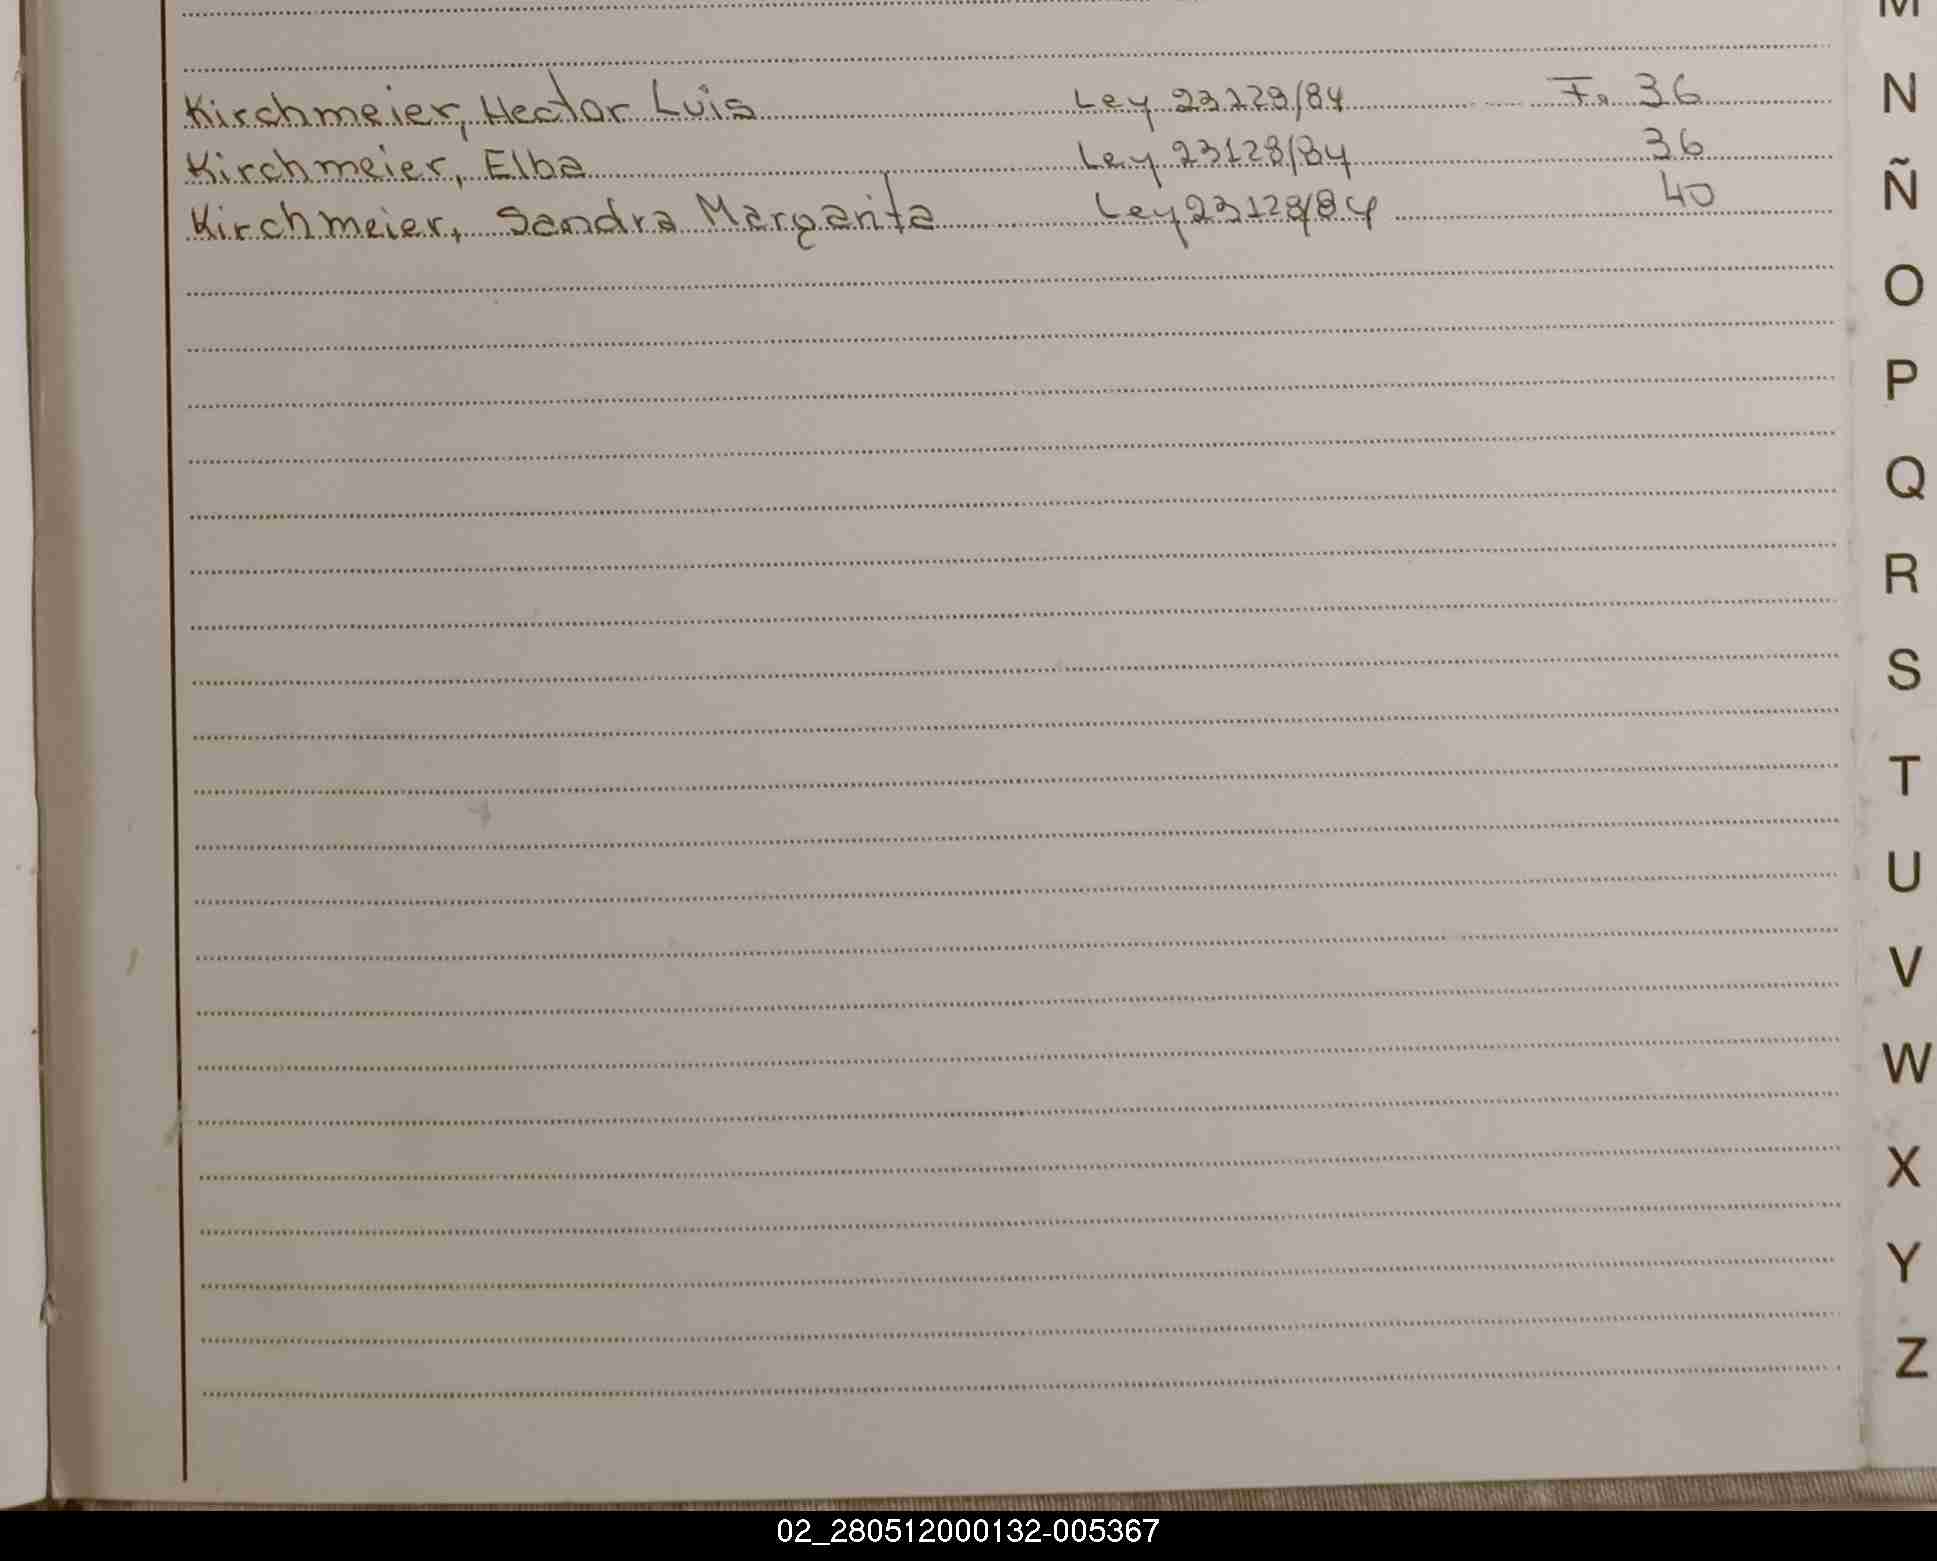 Kirchmeier, Hector Luis Ley 23128/84 Fo 36
Kirchmeier, Elba Ley 23128/84 36
Kirchmeier, Sandra Margarita Ley 23128/84 40
M
N
Ñ
O
P
Q
R
S
T
U
V
W
X
Y
Z
02_280512000132-005367